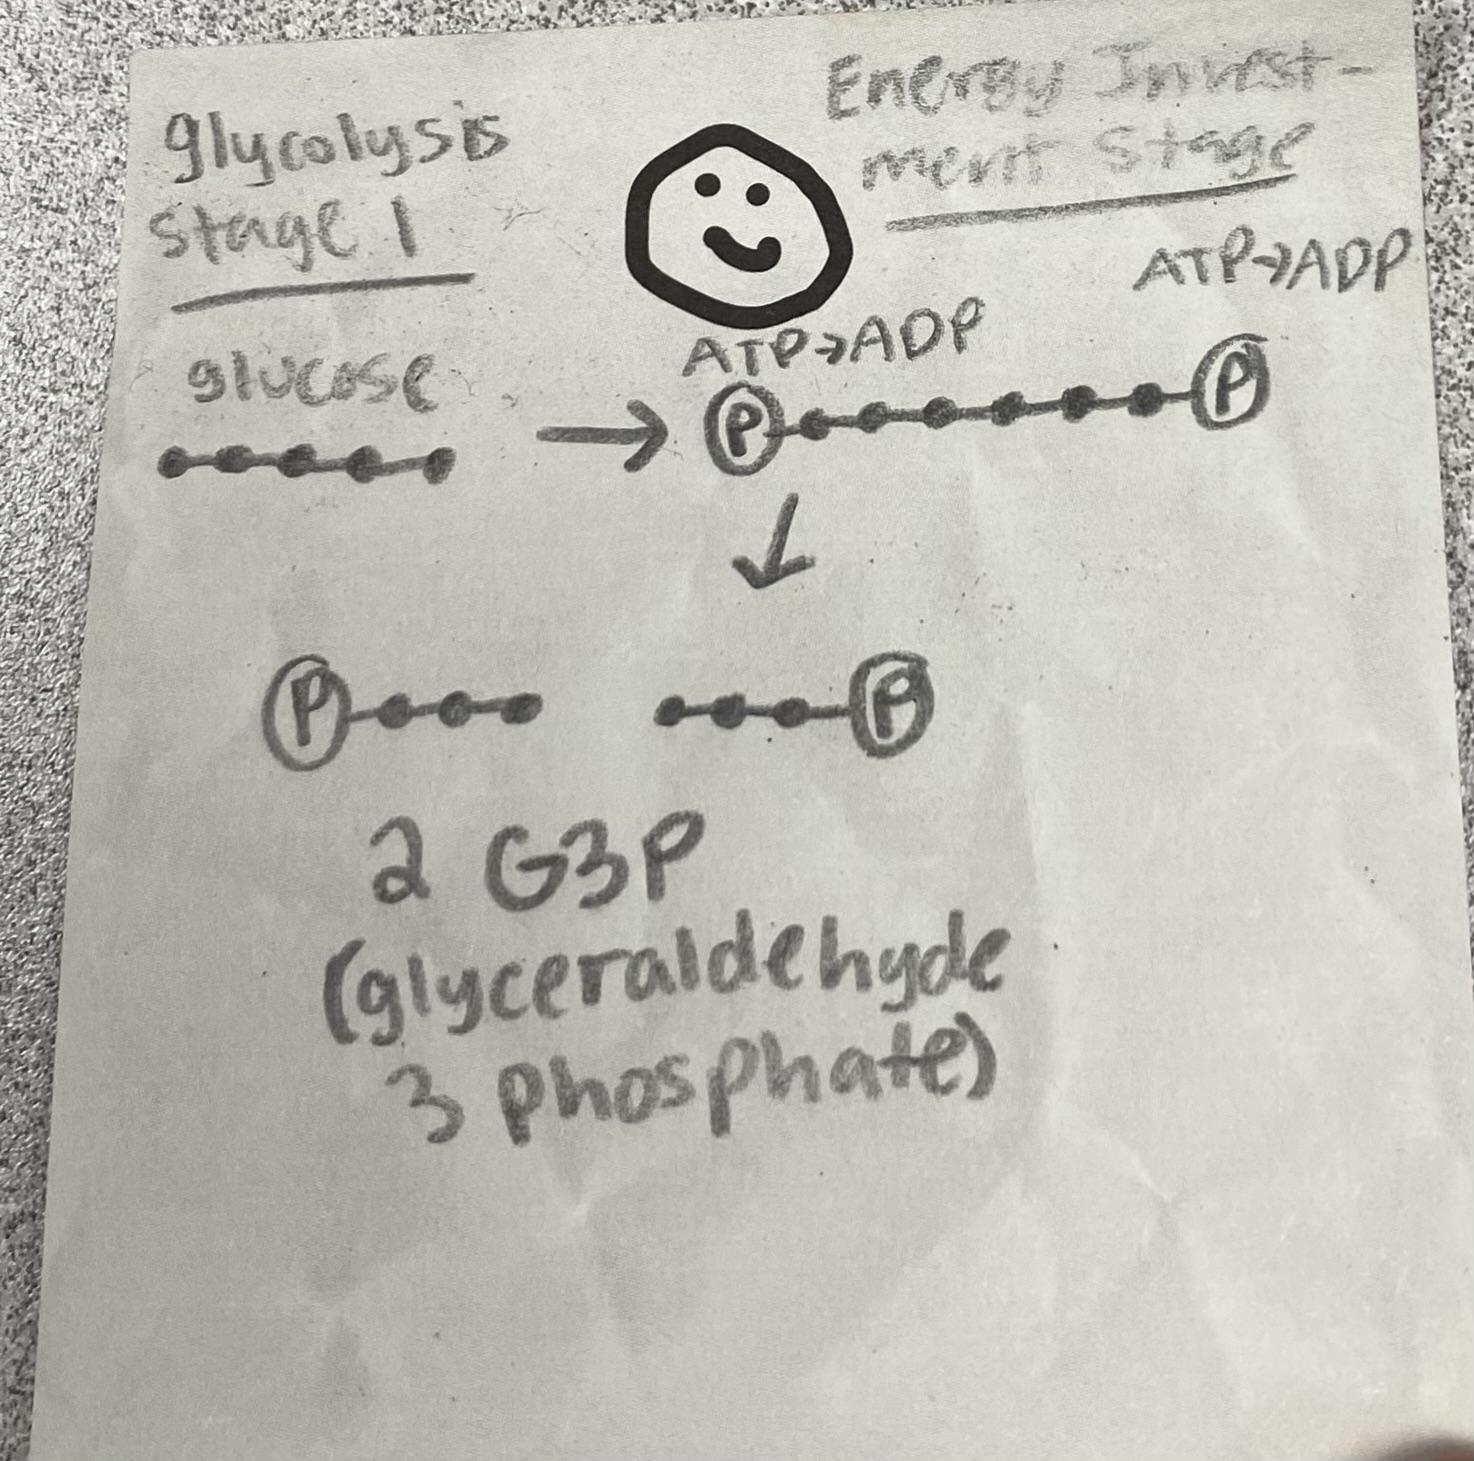 glycolysis
stage 1
Energy Invest-
ment Stage
glucose
ATP→ADP
ATP→ADP
P
P
P
P
2 G3P
(glyceraldehyde
3 phosphate)